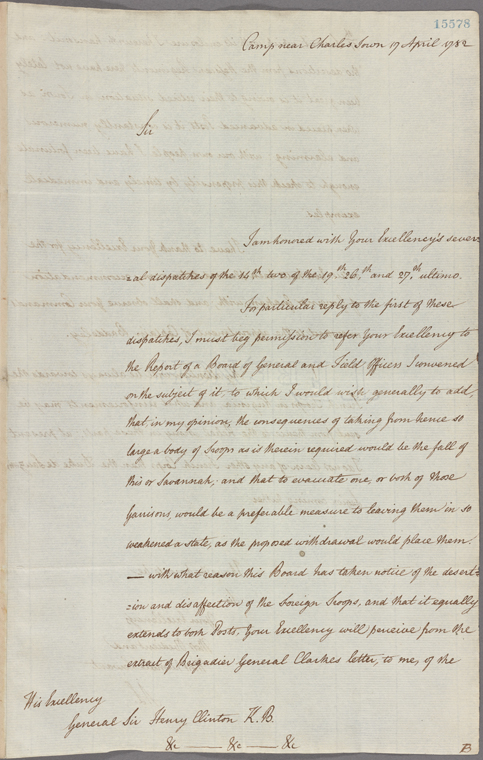 15578
Camp near Charles Town 17 April 1782
Sir
I am honored with Your Excellency's sever
=al dispatches of the 14th two of the 19th 26th, and 27th, ultimo.
For particular reply to the first of these
dispatches, I must beg permission to refer Your Excellency to
the Report of a Board of General and Field Officers I convened
on the subject of it, to which I would wish generally to add,
that, in my opinion, the consequences of taking from hence so
large a body of Troops as is therein required would be the fall of
this or Savannah; and that to evacuate one, or both of those
Garrisons, would be a preferable measure to leaving them in so
weakened a state, as the proposed withdrawal would place them.
— with what reason this Board has taken notice of the desert=
=ion and disaffection of the Foreign Troops, and that it equally
extends to both Posts, Your Excellency will perceive from the
extract of Brigadier General Clarkes letter, to me, of the
His Excellency
General Sir Henry Clinton K.B.
&c —— &c —— &c
B